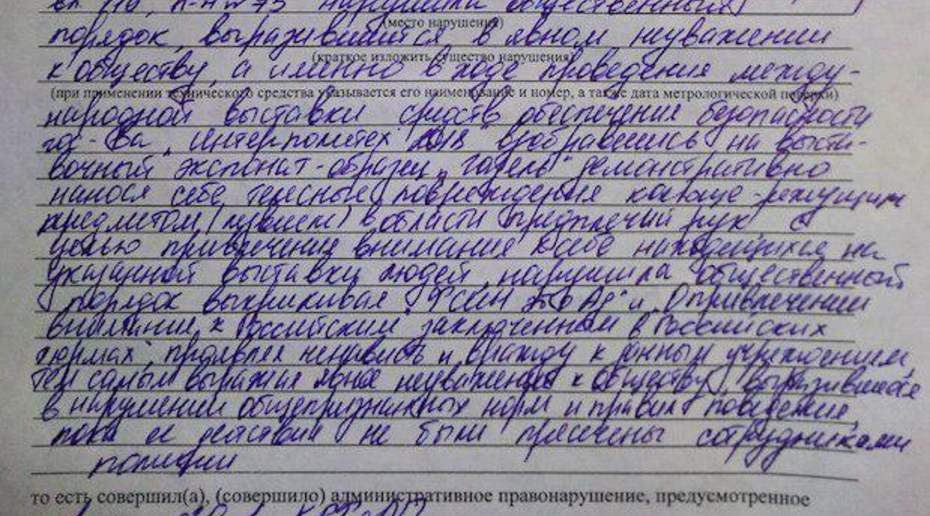 (место нарушения)
порядок, выразившийся в явном неуважении
(кратко изложить существо нарушения)
к обществу, а именно в ходе проведения между-
(при применении технического средства указывается его наименование и номер, а также дата метрологической поверки)
народной выставки средств обеспечения безопасности
гос-ва „интерполитех 2018" взобравшись на выста-
вочный экспонат-образец „газель" демонстративно
нанося себе телесные повреждения колюще-режущим
предметом в области предплечий рук с
целью привлечения внимания к себе находящихся на
указанной выставки людей, нарушила общественный
порядок выкрикивая „ФСИН и О привлечении
внимание к Российским заключенным в Российских
проявляя ненависть и вражду к данным учреждениям
тем самым выражая явное неуважение к обществу, выразившееся
в нарушении общепризнанных норм и правил поведения,
пока ее действия не были пресечены сотрудниками
полиции
то есть совершил(а), (совершило) административное правонарушение, предусмотренное